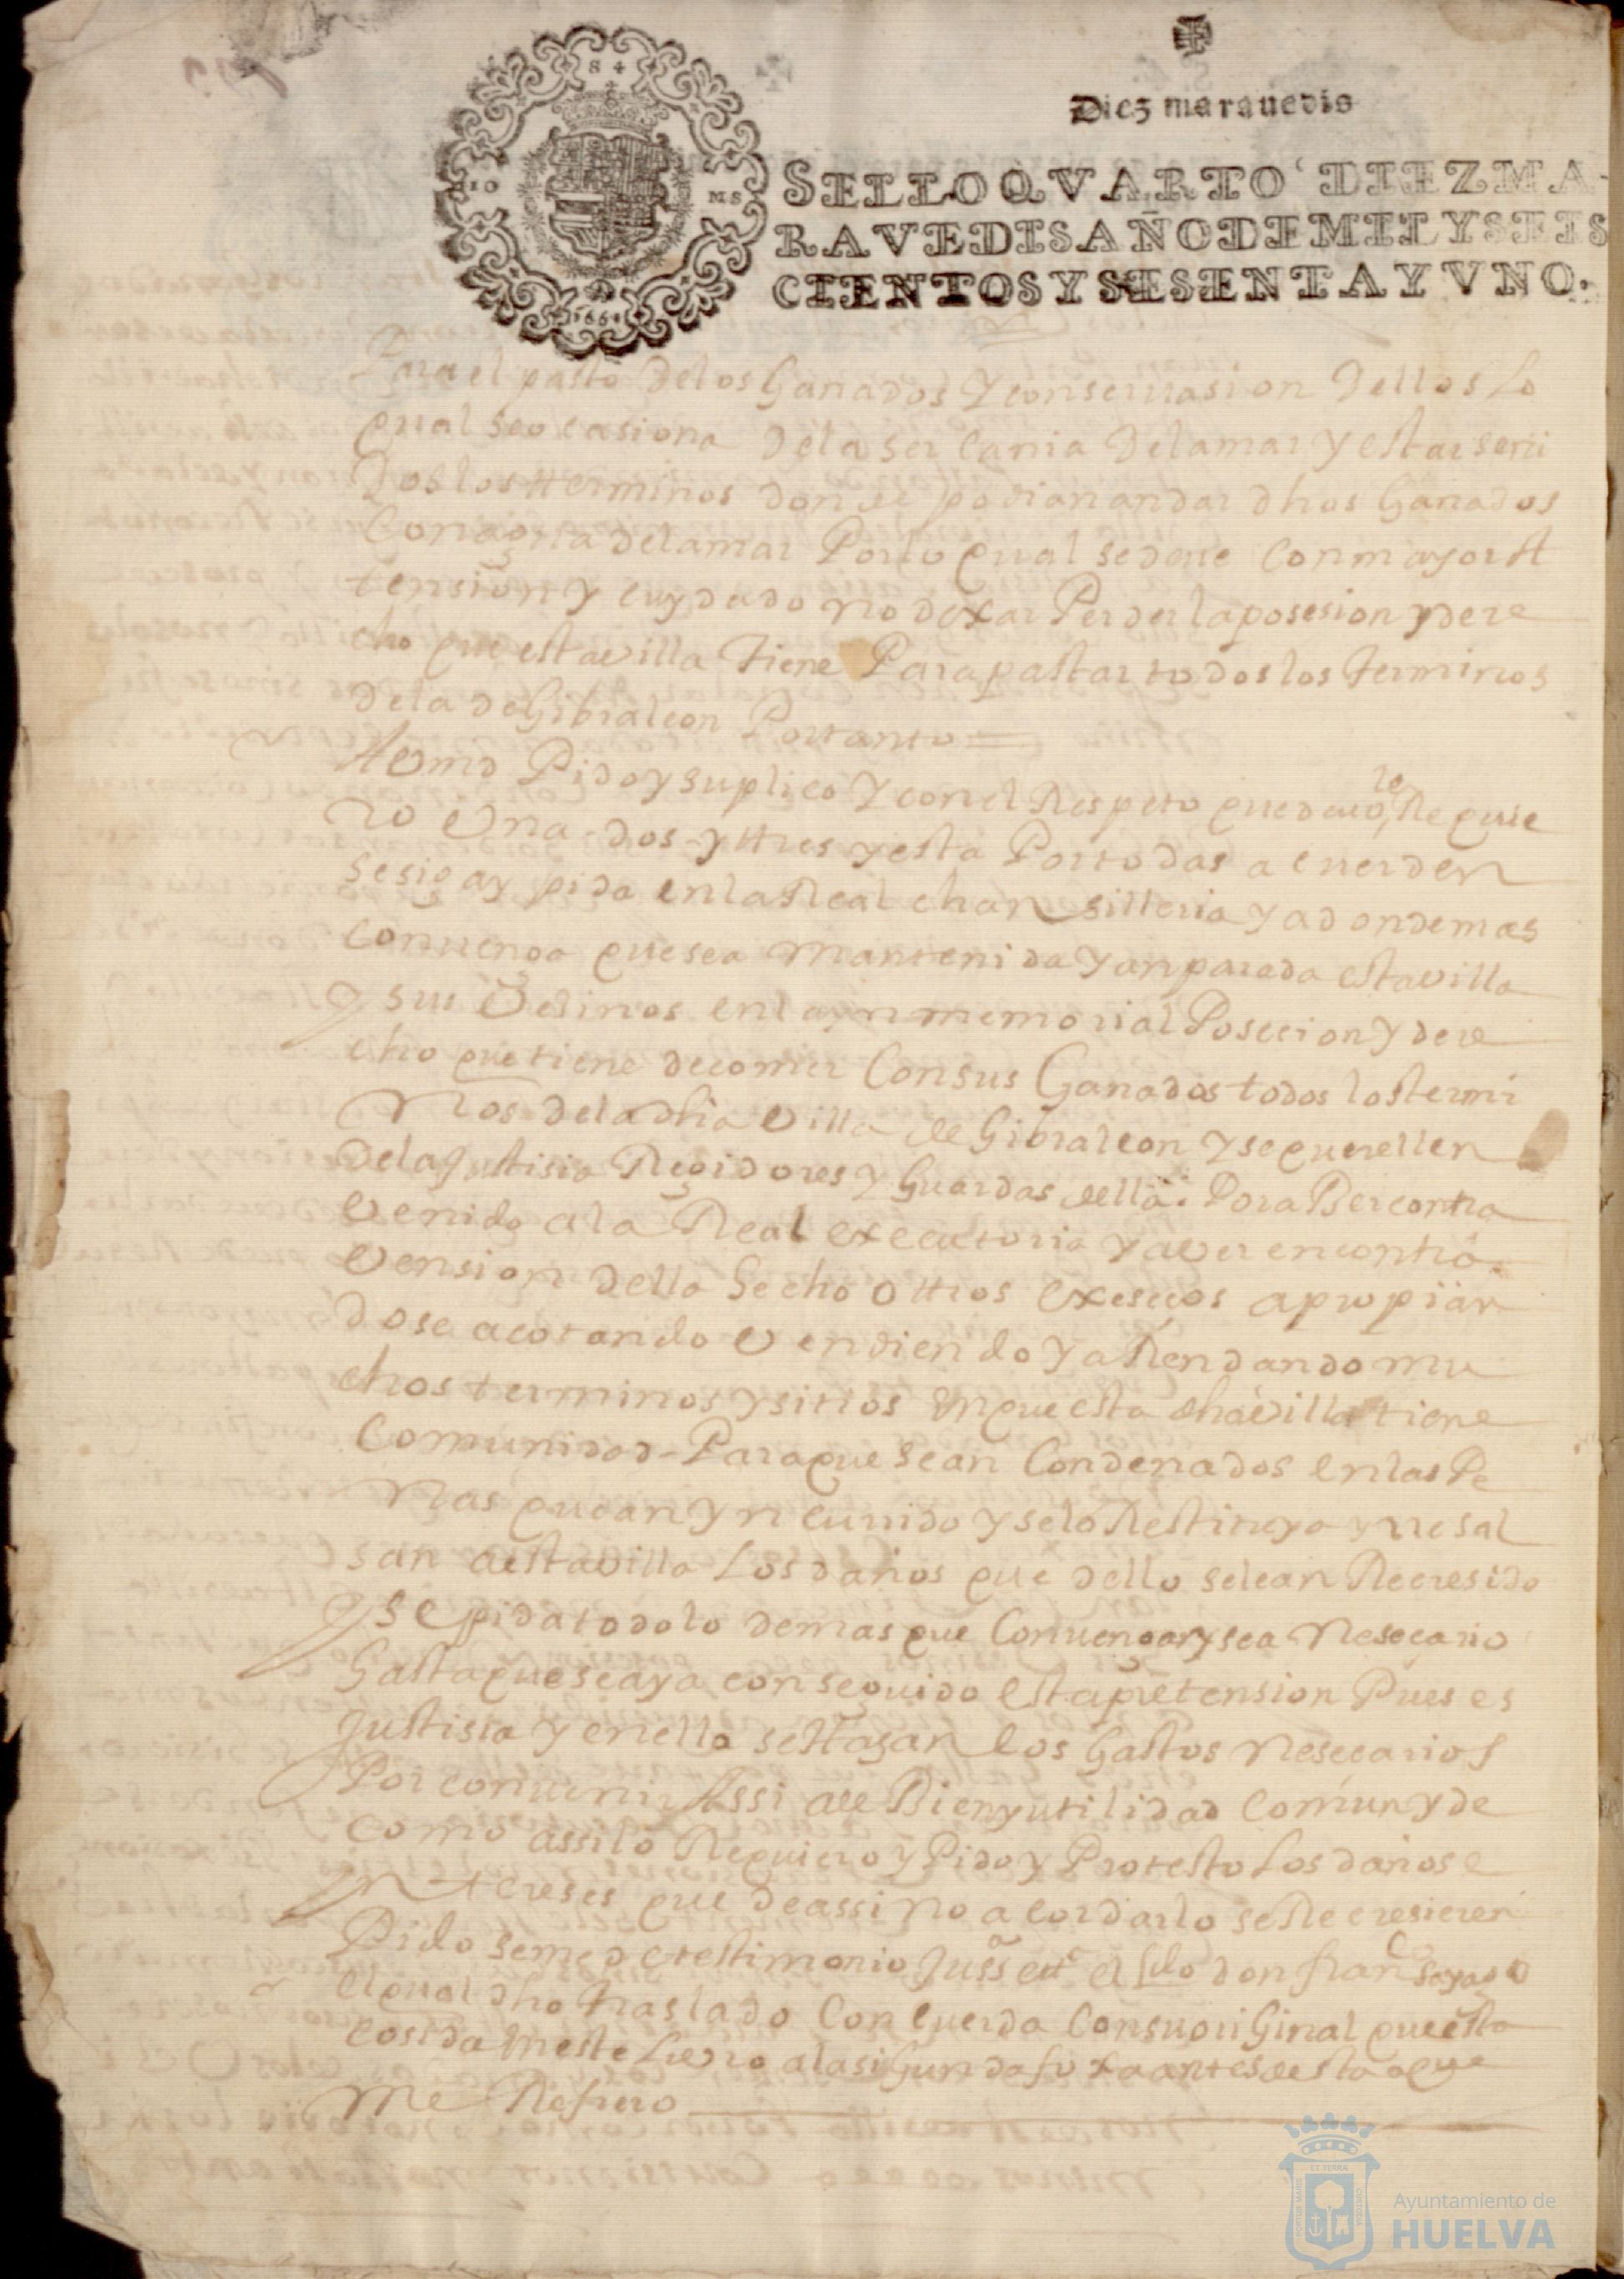 Diez marauedis
SELLO QVARTO DIEZ MA-
RAVEDIS AÑO DE MIL Y SEIS
CIENTOS Y SESENTA Y VNO.
1661
Para el pasto delos Ganados y conseruasion dellos Lo
qual se ocasiona dela sercania dela mar y estar seruí
dos los tterminos donde podian andar dhos Ganados
Con agua dela mar Por lo qual se deue con mayor A
tension y cuydado no dexar Perder la posesion y dere
cho que esta villa tiene Para pastar todos los terminos
dela de Gibraleon Por tanto
A Vmd Pido y suplico y con el Respeto que deuo, le Requie
ro Vna - dos - y ttres y esta Por todas acuerden
se siga y pida en la Real chansilleria y adonde mas
conuenga que sea mantenida y anparada esta villa
y sus Vesinos en la ynmemorial Posecion y dere
cho que tiene de comer Con sus Ganados todos los termi
Nos dela dha Villa de Gibraleon y se querellen
dela Justisia Regidores y Guardas della. Por aBer contra
Venido a la Real executoria y aver en contra
Vension della hecho ottros exesos apropian
dose acotando Vendiendo y aRendando mu
chos terminos y sitios en que esta dha villa tiene
Comunidad - Para que sean Condenados en las Pe
Nas que an yncurrido y se lo Restituya y rresal
san a esta villa Los daños que dello se le an Recresido
y se pida todo lo demas que Conuenga y sea Nesesario
hasta que se aya conseguido esta pretension Pues es
Justisia y en ello se hagan los gastos Nesesarios
Por conuenir Assi al Bien y utilidad Comun y de
como assi lo Requiero y Pido y Protesto Los daños e
yntereses que de assi no acordarlo se Recresieren
Pido se me de testimonio Jussª etª el Ldo don franco sayago
el qual dho traslado Concuerda Con su oriGinal que esta
cosida en este Livro a la siGunda foxa antes desta a que
Me Refiero
Ayuntamiento de
HUELVA